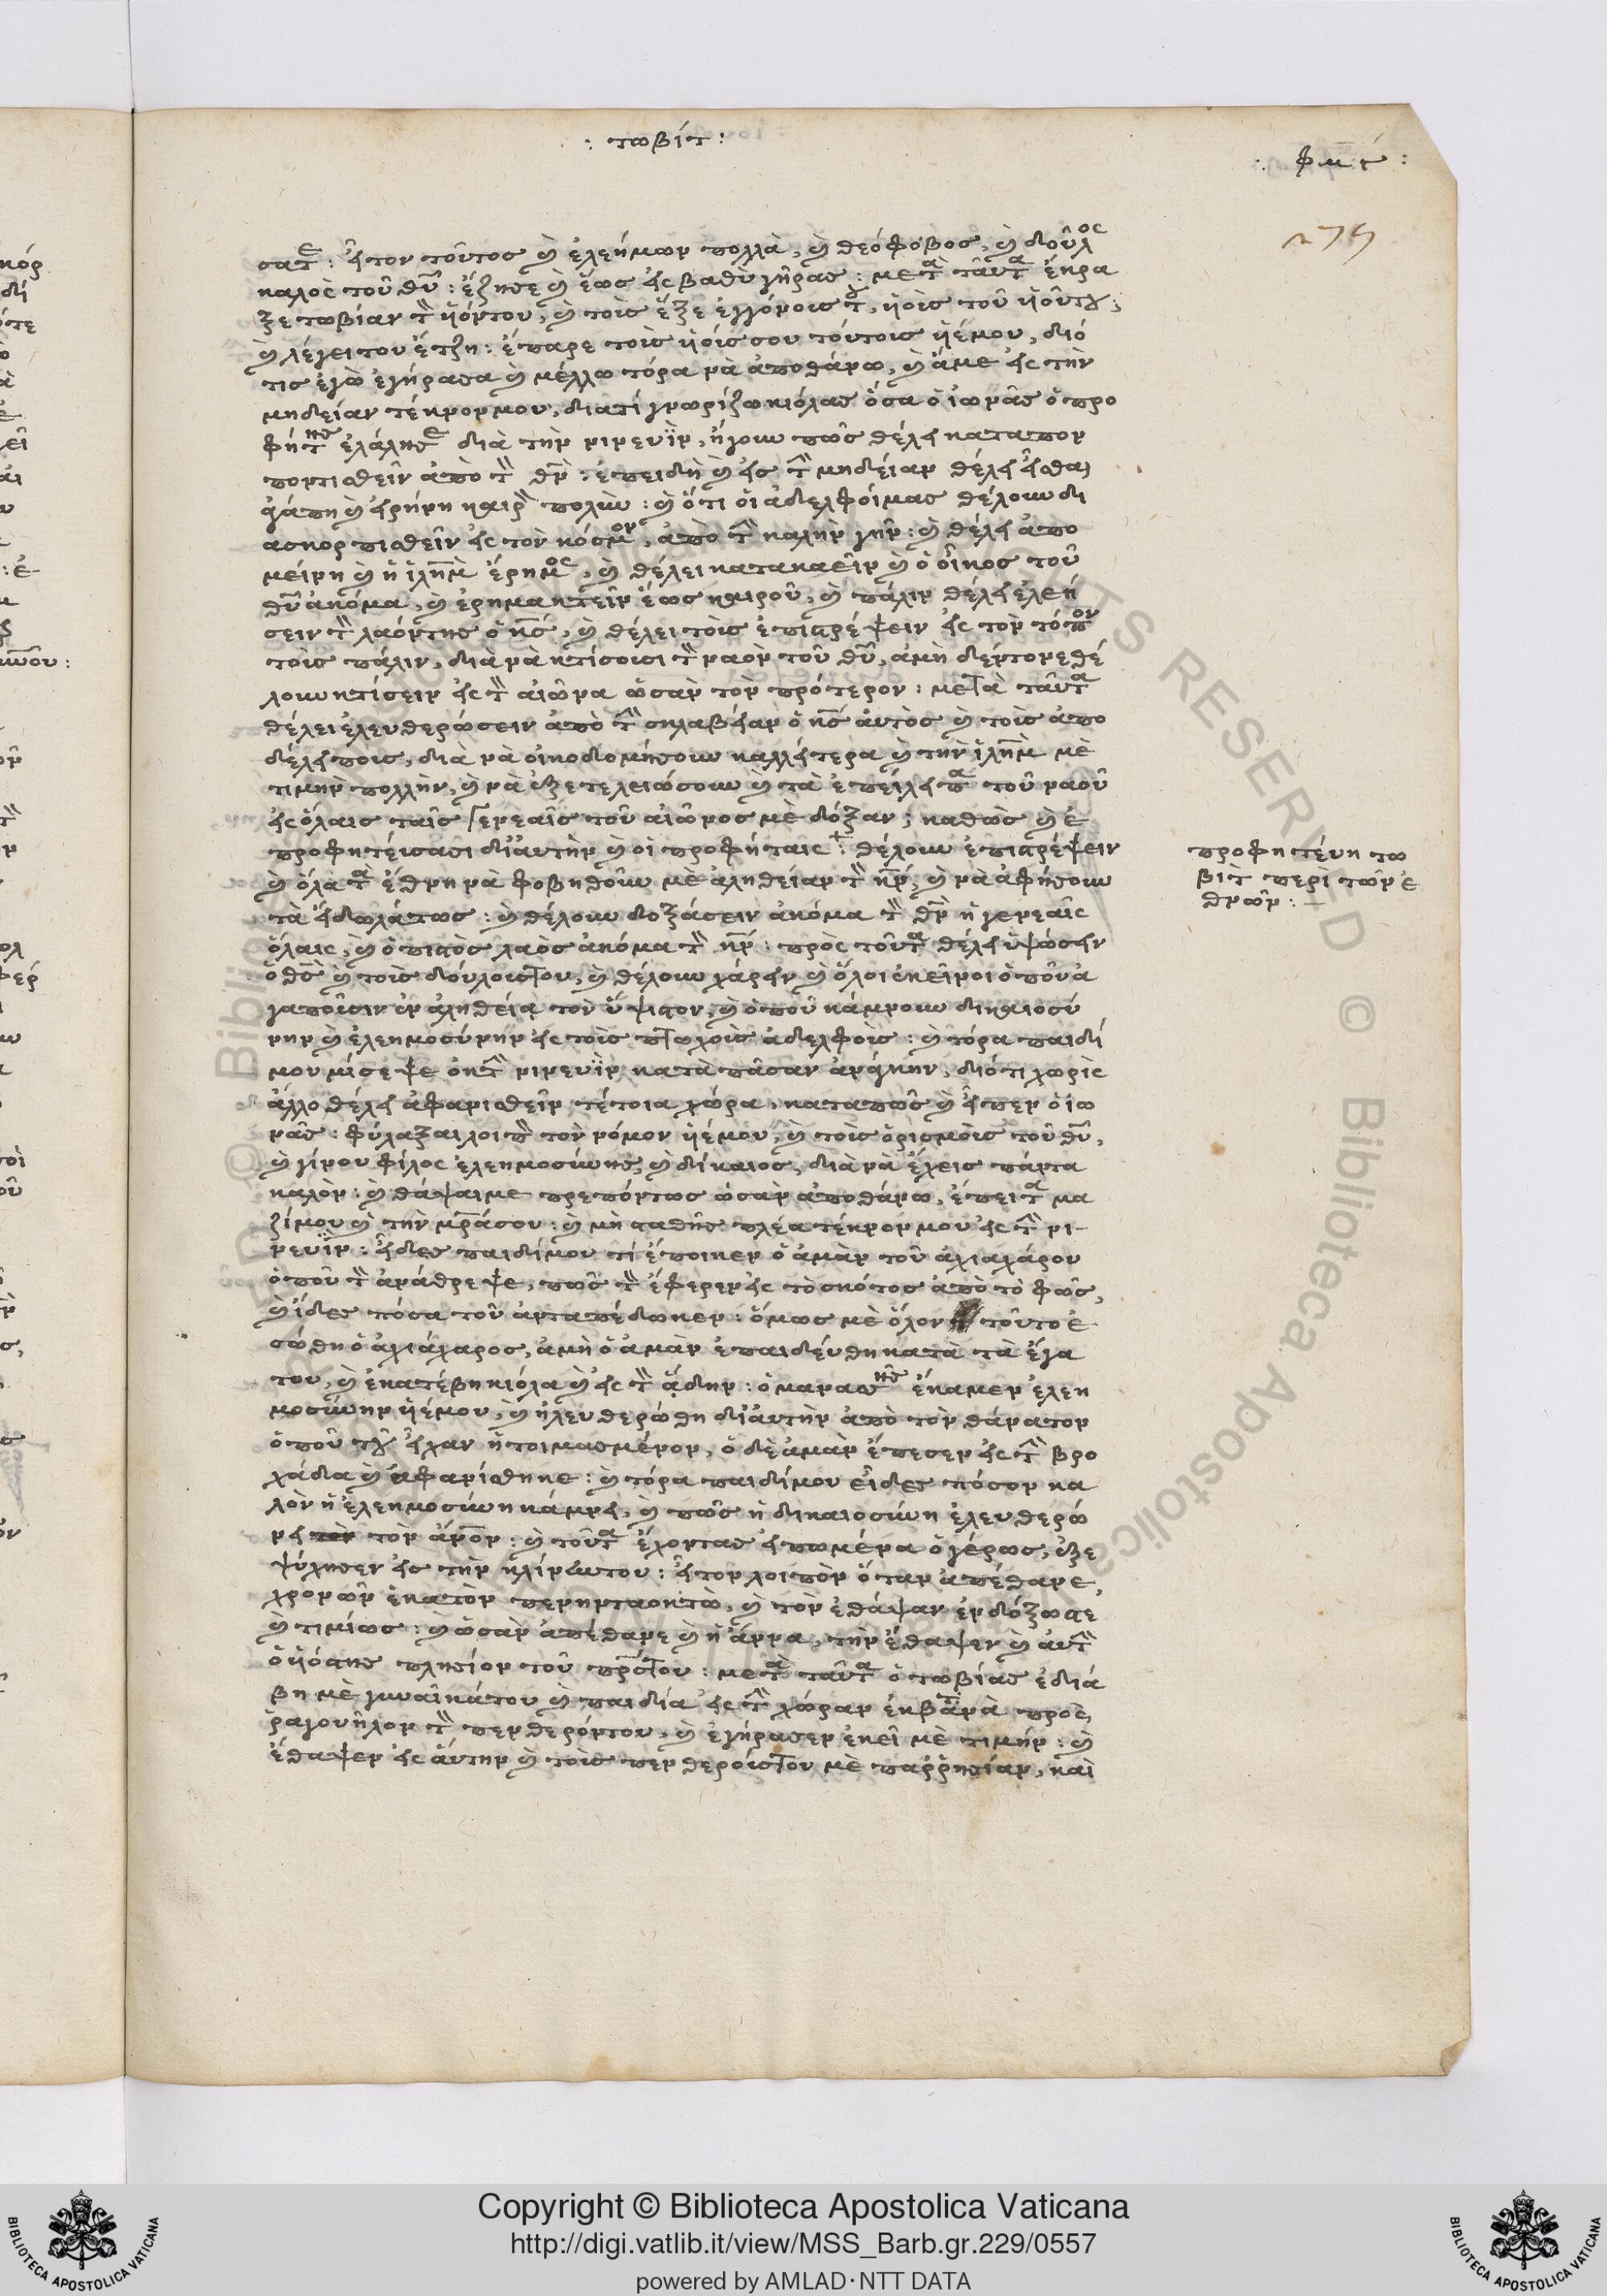 : τωβίτ :
σατε : ἦτον τοῦτος καὶ ἐλεήμων πολλὰ, καὶ θεόφοβος, καὶ δοῦλος
καλὸς τοῦ θῦ : ἔζησε καὶ ἕως εἰς βαθὺ γῆρας : μετὰ ταῦτα ἔκρα
ξε τωβίαν τὸν ὑιόντου, καὶ τοὶς ἕξε ἐγγόνοις του, ὑοὶς τοῦ ὑιοῦτου,
καὶ λέγει του ἔτζη : ἔπαρε τοὶς ὑιοίς σου τούτοις ὑιέμου, διό
τις ἐγὼ ἐγήρασα καὶ μέλλω τόρα νὰ ἀποθάνω, καὶ ἄμε εἰς τὴν
μηδείαν τέκνον μου, διατὶ γνωρίζω κιόλας ὅσα ὁ ἰωνᾶς ὁ προ
φήτης ἐλάλησε διὰ τὴν νινευῒν, ἤγουν πῶς θέλει καταπον
ποντισθεῖν ἀπὸ τὸν θν : ἐπειδὴ καὶ εἰς τὴν μηδείαν θέλει εἶσθαι
ἀγάπη καὶ εἰρήνη καιρὸν πολὺν : καὶ ὅτι οἱ ἀδελφοίμας θέλουν δι
ασκορπισθεῖν εἰς τὸν κόσμον, ἀπὸ τὴν καλὴν γῆν : καὶ θέλει ἀπο
μείνη καὶ ἡ ἱλημ ἔρημος, καὶ θέλει κατακαεῖν καὶ ὁ οἶκος τοῦ
θῦ ἀκόμα, καὶ ἐρημακτεῖν ἕως καιροῦ, καὶ πάλιν θέλει ἐλεή
σειν τὸν λαόντης ὁ κς, καὶ θέλει τοὶς ἐπιστρέψειν εἰς τὸν τόπον
τοὶς πάλιν, διὰ νὰ κτίσοισι τὸν ναὸν τοῦ θῦ, ἀμὴ δέντονε θέ
λουν κτίσειν εἰς τὸν αἰῶνα ὡσὰν τὸν πρότερον : μετὰ ταῦτα
θέλει ἐλευθερώσειν ἀπὸ τὴν σκλαβείαν ὁ κς ἀυτὸς καὶ τοὶς ἀπο
δέλειποις, διὰ νὰ οἰκοδομήσουν καλλείτερα καὶ τὴν ἱλημ μὲ
τιμὴν πολλὴν, καὶ νὰ ἐξετελειώσουν καὶ τὰ ἐπείλειπα τοῦ ναοῦ
εἰς ὅλαις ταῖς γενεαῖς τοῦ αἰῶνος μὲ δόξαν, καθὼς καὶ ἐ
προφητέυσασι δἰἀυτὴν καὶ οἱ προφήταις : θέλουν ἐπιστρέψειν
καὶ ὅλα τὰ ἔθνη νὰ φοβηθοῦν μὲ αληθείαν τὸν κν, καὶ νὰ ἀφήσουν
τὰ εἴδωλάτως : καὶ θέλουν δοξάσειν ἀκόμα τὸν θν ἡ γενεαὶς
ὅλαις, καὶ ὁ πιστὸς λαὸς ἀκόμα τὸν κν : πρὸς τοῦτα θέλει ὑψώσειν
ὁ θς καὶ τοὶς δούλοιςτου, καὶ θέλουν χάρειν καὶ ὅλοι ἐκεῖνοι ὁποῦ ἀ
γαποῦσιν ἐν ἀληθείᾳ τὸν ὕψιστον, καὶ ὁποῦ κάμνουν δικαιοσύ
νην καὶ ἐλεημοσύνην εἰς τοὶς πτωχοὶς ἀδελφοὶς : καὶ τόρα παιδί
μου μίσεψε ἐκ τὴν νινευῒν κατὰ πᾶσαν ἀνάγκην, διότι χωρὶς
ἄλλο θέλει ἀφανισθεῖν τέτοια χώρα, καταπῶς καὶ εἶπεν ὁ ἰω
νᾶς : φύλαξαι λοιπὸν τὸν νόμον ὑιέμου, καὶ τοὶς ὁρισμοὶς τοῦ θῦ,
καὶ γίνου φίλος ἐλεημοσύνης καὶ δίκαιος, διὰ νὰ ἔχεις πάντα
καλὸν : καὶ θάψαιμε πρεπόντως ὡσὰν ἀποθάνω, ἔπειτα μα
ζίμου καὶ τὴν μρασου : καὶ μὴ σταθῆς πλέα τέκνον μου εἰς τὴν νι-
νευῒν : εἶδες παιδίμου τί ἔποικεν ὁ ἀμὰν τοῦ ἀχιαχάρου
ὁποῦ τὸν ἀνάθρεψε, πῶς τὸν ἔφερεν εἰς τὸ σκότος ἀπὸ τὸ φῶς,
καὶ ἴδες πόσα τοῦ ἀνταπέδωκεν : ὅμως μὲ ὅλον τοῦτο ἐ
σώθη ὁ ἀχιάχαρος, ἀμὴ ὁ ἀμὰν ἐπαιδέυθη κατὰ τὰ ἔγα
του, καὶ ἐκατέβη κιόλα καὶ εἰς τὸν ᾅδην : ὁ μανασῆς ἔκαμεν ἐλεη
μοσύνην ὑιέμου, καὶ ἠλευθερώθη δἰἀυτὴν ἀπὸ τὸν θάνατον
ὁποῦ του εἶχαν ἡτοιμασμένον, ὁ δὲ ἀμὰν ἔπεσεν εἰς τὴν βρο
χάδα καὶ ἀφανίσθηκε : καὶ τόρα παιδίμου εἶδες πόσον κα
λὸν ἡ ἐλεημοσύνη κάμνει, καὶ πῶς ἡ δικαιοσύνη ἐλευθερώ
νει τὸν ἄνον : καὶ τοῦτα ἔχοντας εἰπωμένα ὁ γέρως, ἐξε
ψύχησεν εἰς τὴν κλίνωτου : ἦτον λοιπὸν ὅταν ἀπέθανε,
χρονῶν ἑκατὸν πενηνταοκτὼ, καὶ τὸν ἐθάψαν ἐνδόξως
καὶ τιμίως : καὶ ὡσὰν ἀπέθανε καὶ ἡ ἄννα, τὴν ἔθαψεν καὶ ἀυτὴν
ὁ ὑιόςτης πλησίον τοῦ πρςτου : μετὰ ταῦτα ὁ τωβίας ἐδιά
βη μὲ γυναῖκάτου καὶ παιδία εἰς τὴν χώραν ἐκβάτανα πρὸς
ῥαγουῆλον τὸν πενθερόντου, καὶ ἐγήρασεν ἐκεῖ μὲ τιμήν : καὶ
ἔθαψεν εἰς ἄυτην καὶ τοὶς πενθεροίςτου μὲ παῤῥησίαν, καὶ
προφητέυη τω
βὶτ περὶ τῶν ἐ
θνῶν : —
Copyright © Biblioteca Apostolica Vaticana
http://digi.vatlib.it/view/MSS_Barb.gr.229/0557
powered by AMLAD·NTT DATA
BIBLIOTECA APOSTOLICA VATICANA
BIBLIOTECA APOSTOLICA VATICANA